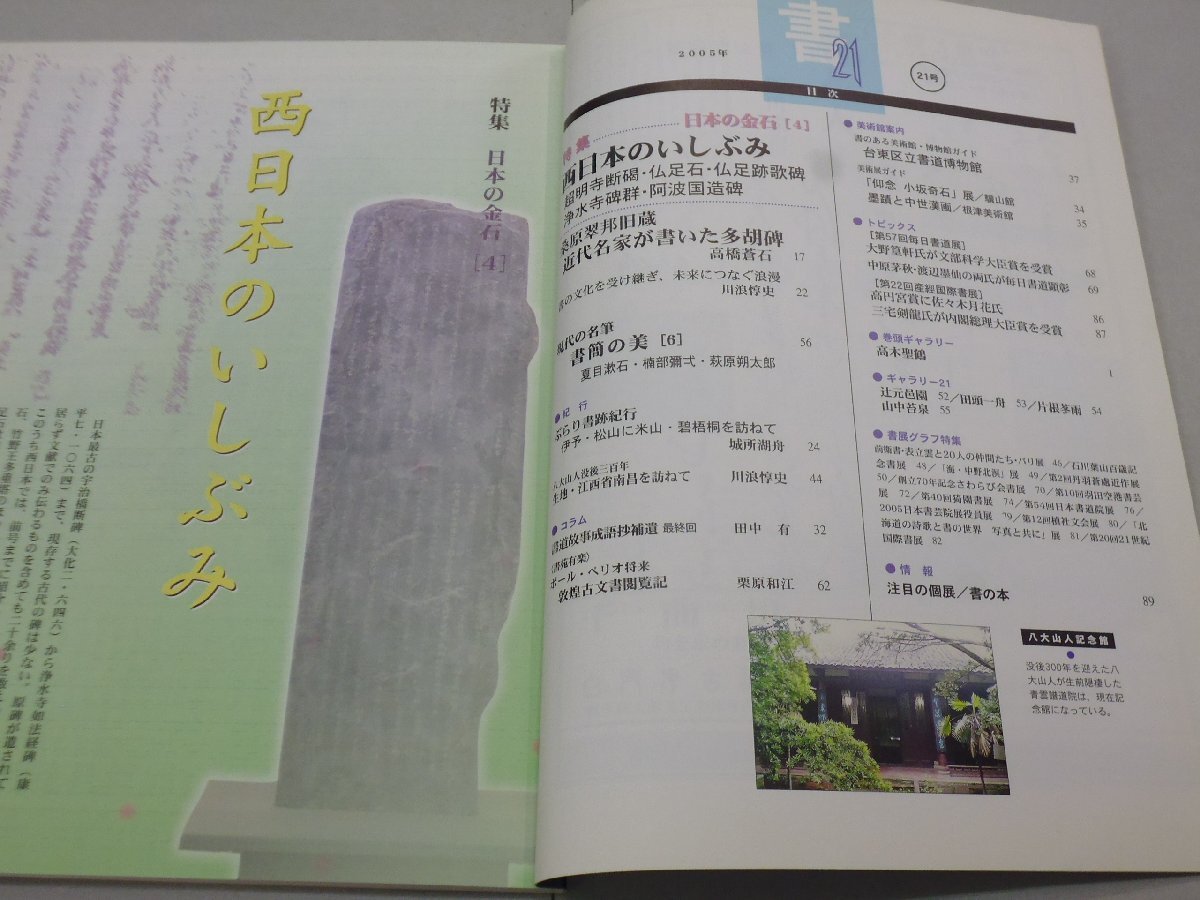 特集 日本の金石[4]
西日本のいしぶみ
日本最古の宇治橋断碑(大化二・六四六)から浄水寺如法経碑(康
平七・一〇六四)まで、現存する古代の碑は少ない。原碑が遺されて
居らず文献でのみ伝わるものを含めても二十余りを数え
このうち西日本では、前号までに紹介
書21
2005年
21号
目次
特集 日本の金石[4]
西日本のいしぶみ
超明寺断碣・仏足石・仏足跡歌碑
浄水寺碑群・阿波国造碑
桑原翠邦旧蔵
近代名家が書いた多胡碑
高橋蒼石 17
書の文化を受け継ぎ、未来につなぐ浪漫
川浪惇史 22
現代の名筆
書簡の美[6] 56
夏目漱石・楠部彌弌・萩原朔太郎
●紀行
ぶらり書跡紀行
伊予・松山に米山・碧梧桐を訪ねて
城所湖舟 24
八大山人没後三百年
生地・江西省南昌を訪ねて 川浪惇史 44
●コラム
書道故事成語抄補遺 最終回 田中 有 32
(書苑有楽)
ポール・ペリオ将来
敦煌古文書閲覧記 栗原和江 62
●美術館案内
書のある美術館・博物館ガイド
台東区立書道博物館 37
美術展ガイド
「仰念 小坂奇石」展/驥山館 34
墨蹟と中世漢画/根津美術館 35
●トピックス
[第57回毎日書道展]
大野篁軒氏が文部科学大臣賞を受賞 68
中原茅秋・渡辺墨仙の両氏が毎日書道顕彰 69
[第22回産経国際書展]
高円宮賞に佐々木月花氏 86
三宅剣龍氏が内閣総理大臣賞を受賞 87
●巻頭ギャラリー
高木聖鶴 1
●ギャラリー21
辻元邑園 52/田頭一舟 53/片根苳雨 54
山中苔泉 55
●書展グラフ特集
前衛書・表立雲と20人の仲間たち・パリ展 46/石川葉山百歳記
念書展 48/「海・中野北溟」展 49/第2回丹羽蒼處近作展
50/創立70年記念さわらび会書展 70/第10回羽田空港書芸
展 72/第40回獨園書展 74/第54回日本書道院展 76/
2005日本書芸院展役員展 79/第12回槙社文会展 80/「北
海道の詩歌と書の世界 写真と共に」展 81/第20回21世紀
国際書展 82
●情報
注目の個展/書の本 89
八大山人記念館
●
没後300年を迎えた八
大山人が生前隠棲した
青雲譜道院は、現在記
念館になっている。